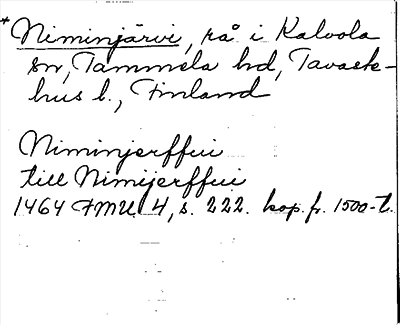 *Niminjärvi, rå i Kalvola
sn, Tammela hd, Tavaste-
hus l., Finland
Niminjerffui
till Nimijerffui
1464 FMU 4, s. 222. kop. fr. 1500-t.